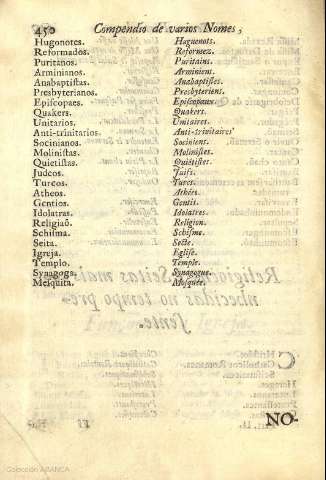 450 Compendio de varios Nomes,
Hugonotes. Huguenots.
Reformados. Reformez.
Puritanos. Puritains.
Arminianos. Arminiens.
Anabaptistas. Anabaptistes.
Presbyterianos. Presbyteriens.
Episcopaes. Episcopaux.
Quakers. Quakers.
Unitarios. Unitaires.
Anti-trinitarios. Anti-trinitaires
Socinianos. Sociniens.
Molinistas. Molinistes.
Quietistas. Quiëtistes.
Judeos. Juifs.
Turcos. Turcs.
Atheos. Athées.
Gentios. Gentils.
Idolatras. Idolatres.
Religiaõ. Religion.
Schisma. Schisme.
Seita. Secte.
Igreja. Eglise.
Templo. Temple.
Synagoga. Synagogue.
Mesquita. Mosquée.
NO-
Colección ABANCA